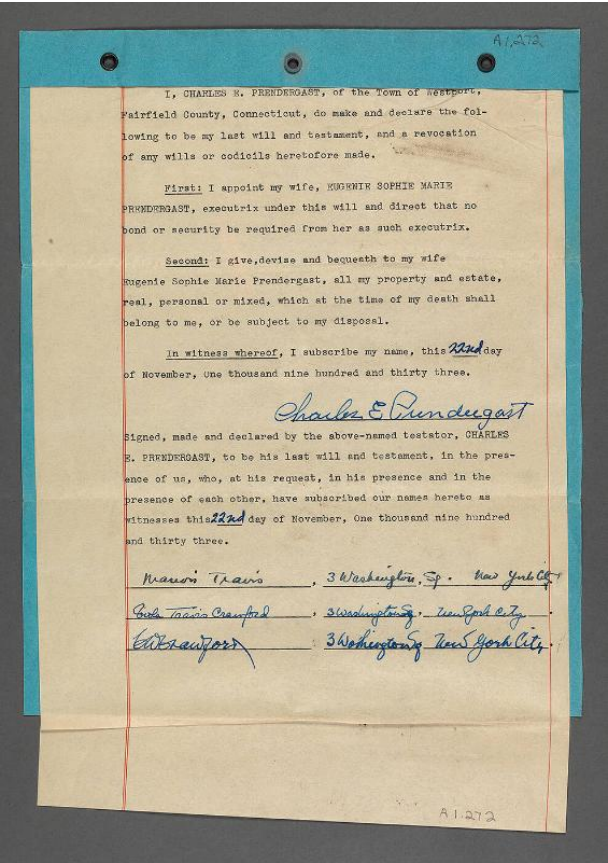 A1,272
I, CHARLES E. PRENDERGAST, of the Town of Westport,
Fairfield County, Connecticut, do make and declare the fol-
lowing to be my last will and testament, and a revocation
of any wills or codicils heretofore made.
First: I appoint my wife, EUGENIE SOPHIE MARIE
PRENDERGAST, executrix under this will and direct that no
bond or security be required from her as such executrix.
Second: I give,devise and bequeath to my wife
Eugenie Sophie Marie Prendergast, all my property and estate,
real, personal or mixed, which at the time of my death shall
belong to me, or be subject to my disposal.
In witness whereof, I subscribe my name, this 22nd day
of November, One thousand nine hundred and thirty three.
Charles E Prendergast
Signed, made and declared by the above-named testator, CHARLES
E. PRENDERGAST, to be his last will and testament, in the pres-
ence of us, who, at his request, in his presence and in the
presence of each other, have subscribed our names hereto as
witnesses this 22nd day of November, One thousand nine hundred
and thirty three.
Marion Travis, 3 Washington, Sq. New York City
Travis Crawford, 3 Washington Sq. New York City.
Crawford, 3 Washington Sq New York City.
A1.272